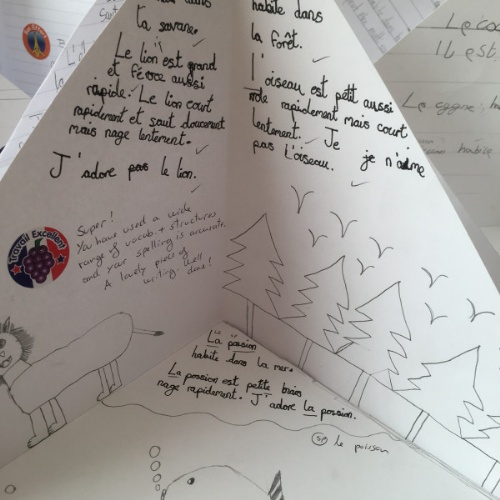 la savane.
Le lion est grand
et féroce aussi
rapide. Le lion court
rapidement et saut doucement
mais nage lentement.
J'adore pas le lion.
habite dans
la forêt.
L'oiseau est petit aussi
rapidement mais court
lentement. Je je n'aime
pas l'oiseau.
travail Excellent
Super!
You have used a wide
range of vocab + structures
and your spelling is accurate.
A lovely piece of
writing. Well
done!
La possion
habite dans la mer.
La possion est petite
nage rapidement. J'adore la possion.
sp Le poisson
Il est
habite